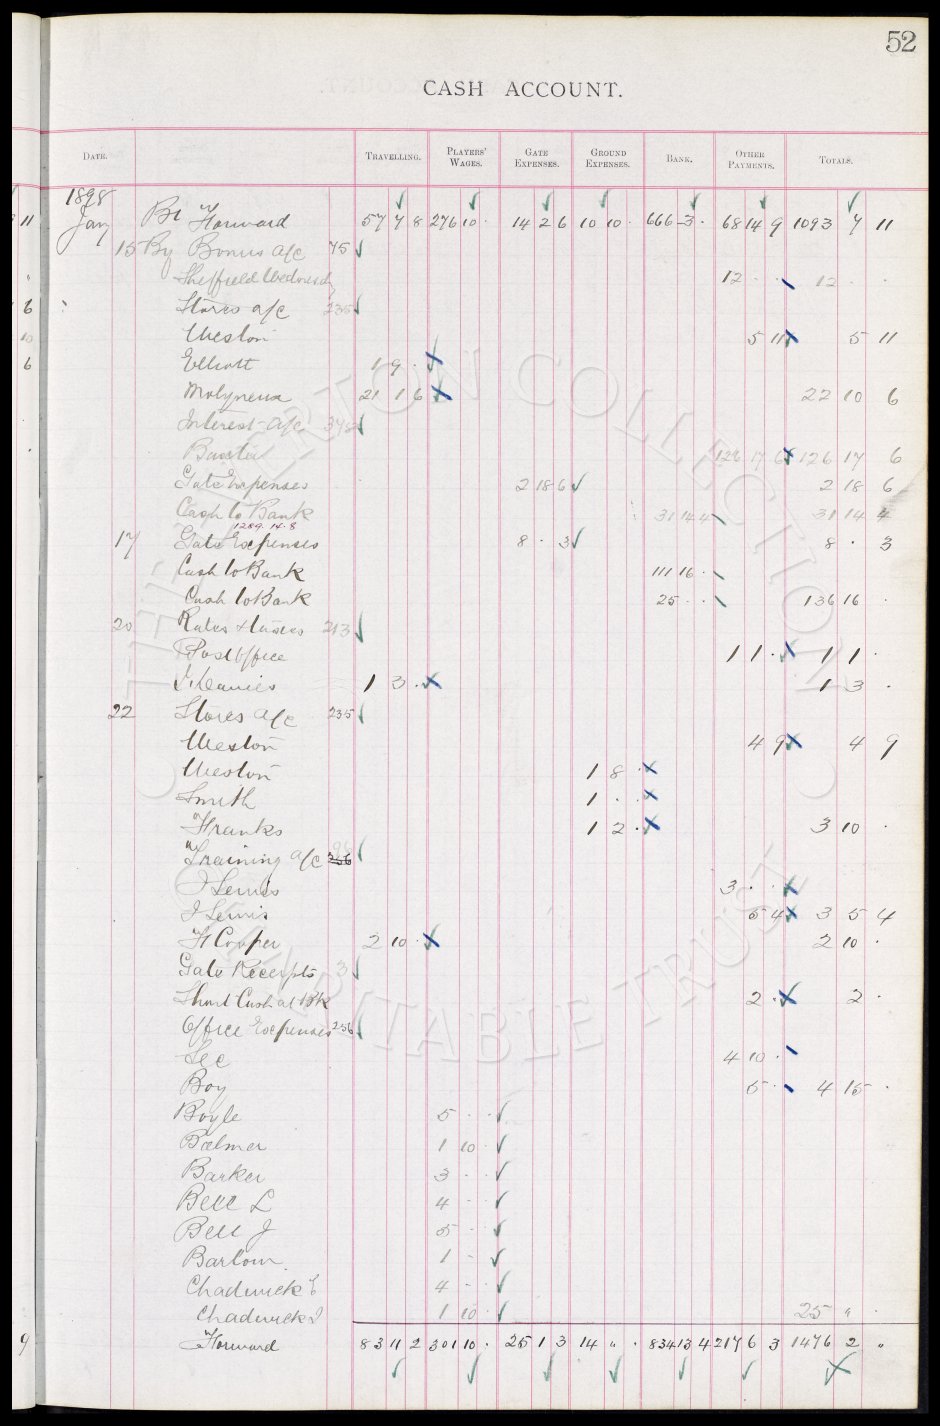 52
CASH ACCOUNT.
DATE. TRAVELLING. PLAYERS' WAGES. GATE EXPENSES. GROUND EXPENSES. BANK. OTHER PAYMENTS. TOTALS.
1898
11 Jany Bt Forward 57 7 8 276 10 · 14 2 6 10 10 · 666 3 · 68 14 9 1093 7 11
15 By Bonus a/c 75
" Sheffield Wednesdy 12 · · 12 · ·
6 Stores a/c 235
10 Weston 5 11 5 11
6 Elliott 1 9 ·
Molyneux 21 1 6 22 10 6
Interest a/c 378
126 17 6 126 17 6
Gate Expenses 2 18 6 2 18 6
Cash to Bank 31 14 4 31 14 4
1289.14.8
17 Gate Expenses 8 · 3 8 · 3
Cash to Bank 111 16 ·
Cash to Bank 25 · · 136 16 ·
20 Rates & taxes 213
Post Office 1 1 · 1 1 ·
1 3 · 1 3 ·
22 Stores a/c 235
Weston 4 9 4 9
Weston 1 8 ·
Smith 1 · ·
Franks 1 2 · 3 10 ·
Training a/c 256
J Lewis 3 · ·
J Lewis 5 4 3 5 4
H Cooper 2 10 · 2 10 ·
Gate Receipts 3
Short Cash at Bk 2 · 2 ·
Office Expenses 256
Sec 4 10 ·
Boy 5 · 4 15 ·
Boyle 5 · ·
Balmer 1 10 ·
Barker 3 · ·
Bell L 4 · ·
Bell J 5 · ·
Barlow 1 ·
Chadwick E 4 · ·
Chadwick 1 10 · 25 " ·
9 Forward 83 11 2 301 10 · 25 1 3 14 " · 834 13 4 217 6 3 1476 2 "
THE EVERTON COLLECTION
CHARITABLE TRUST